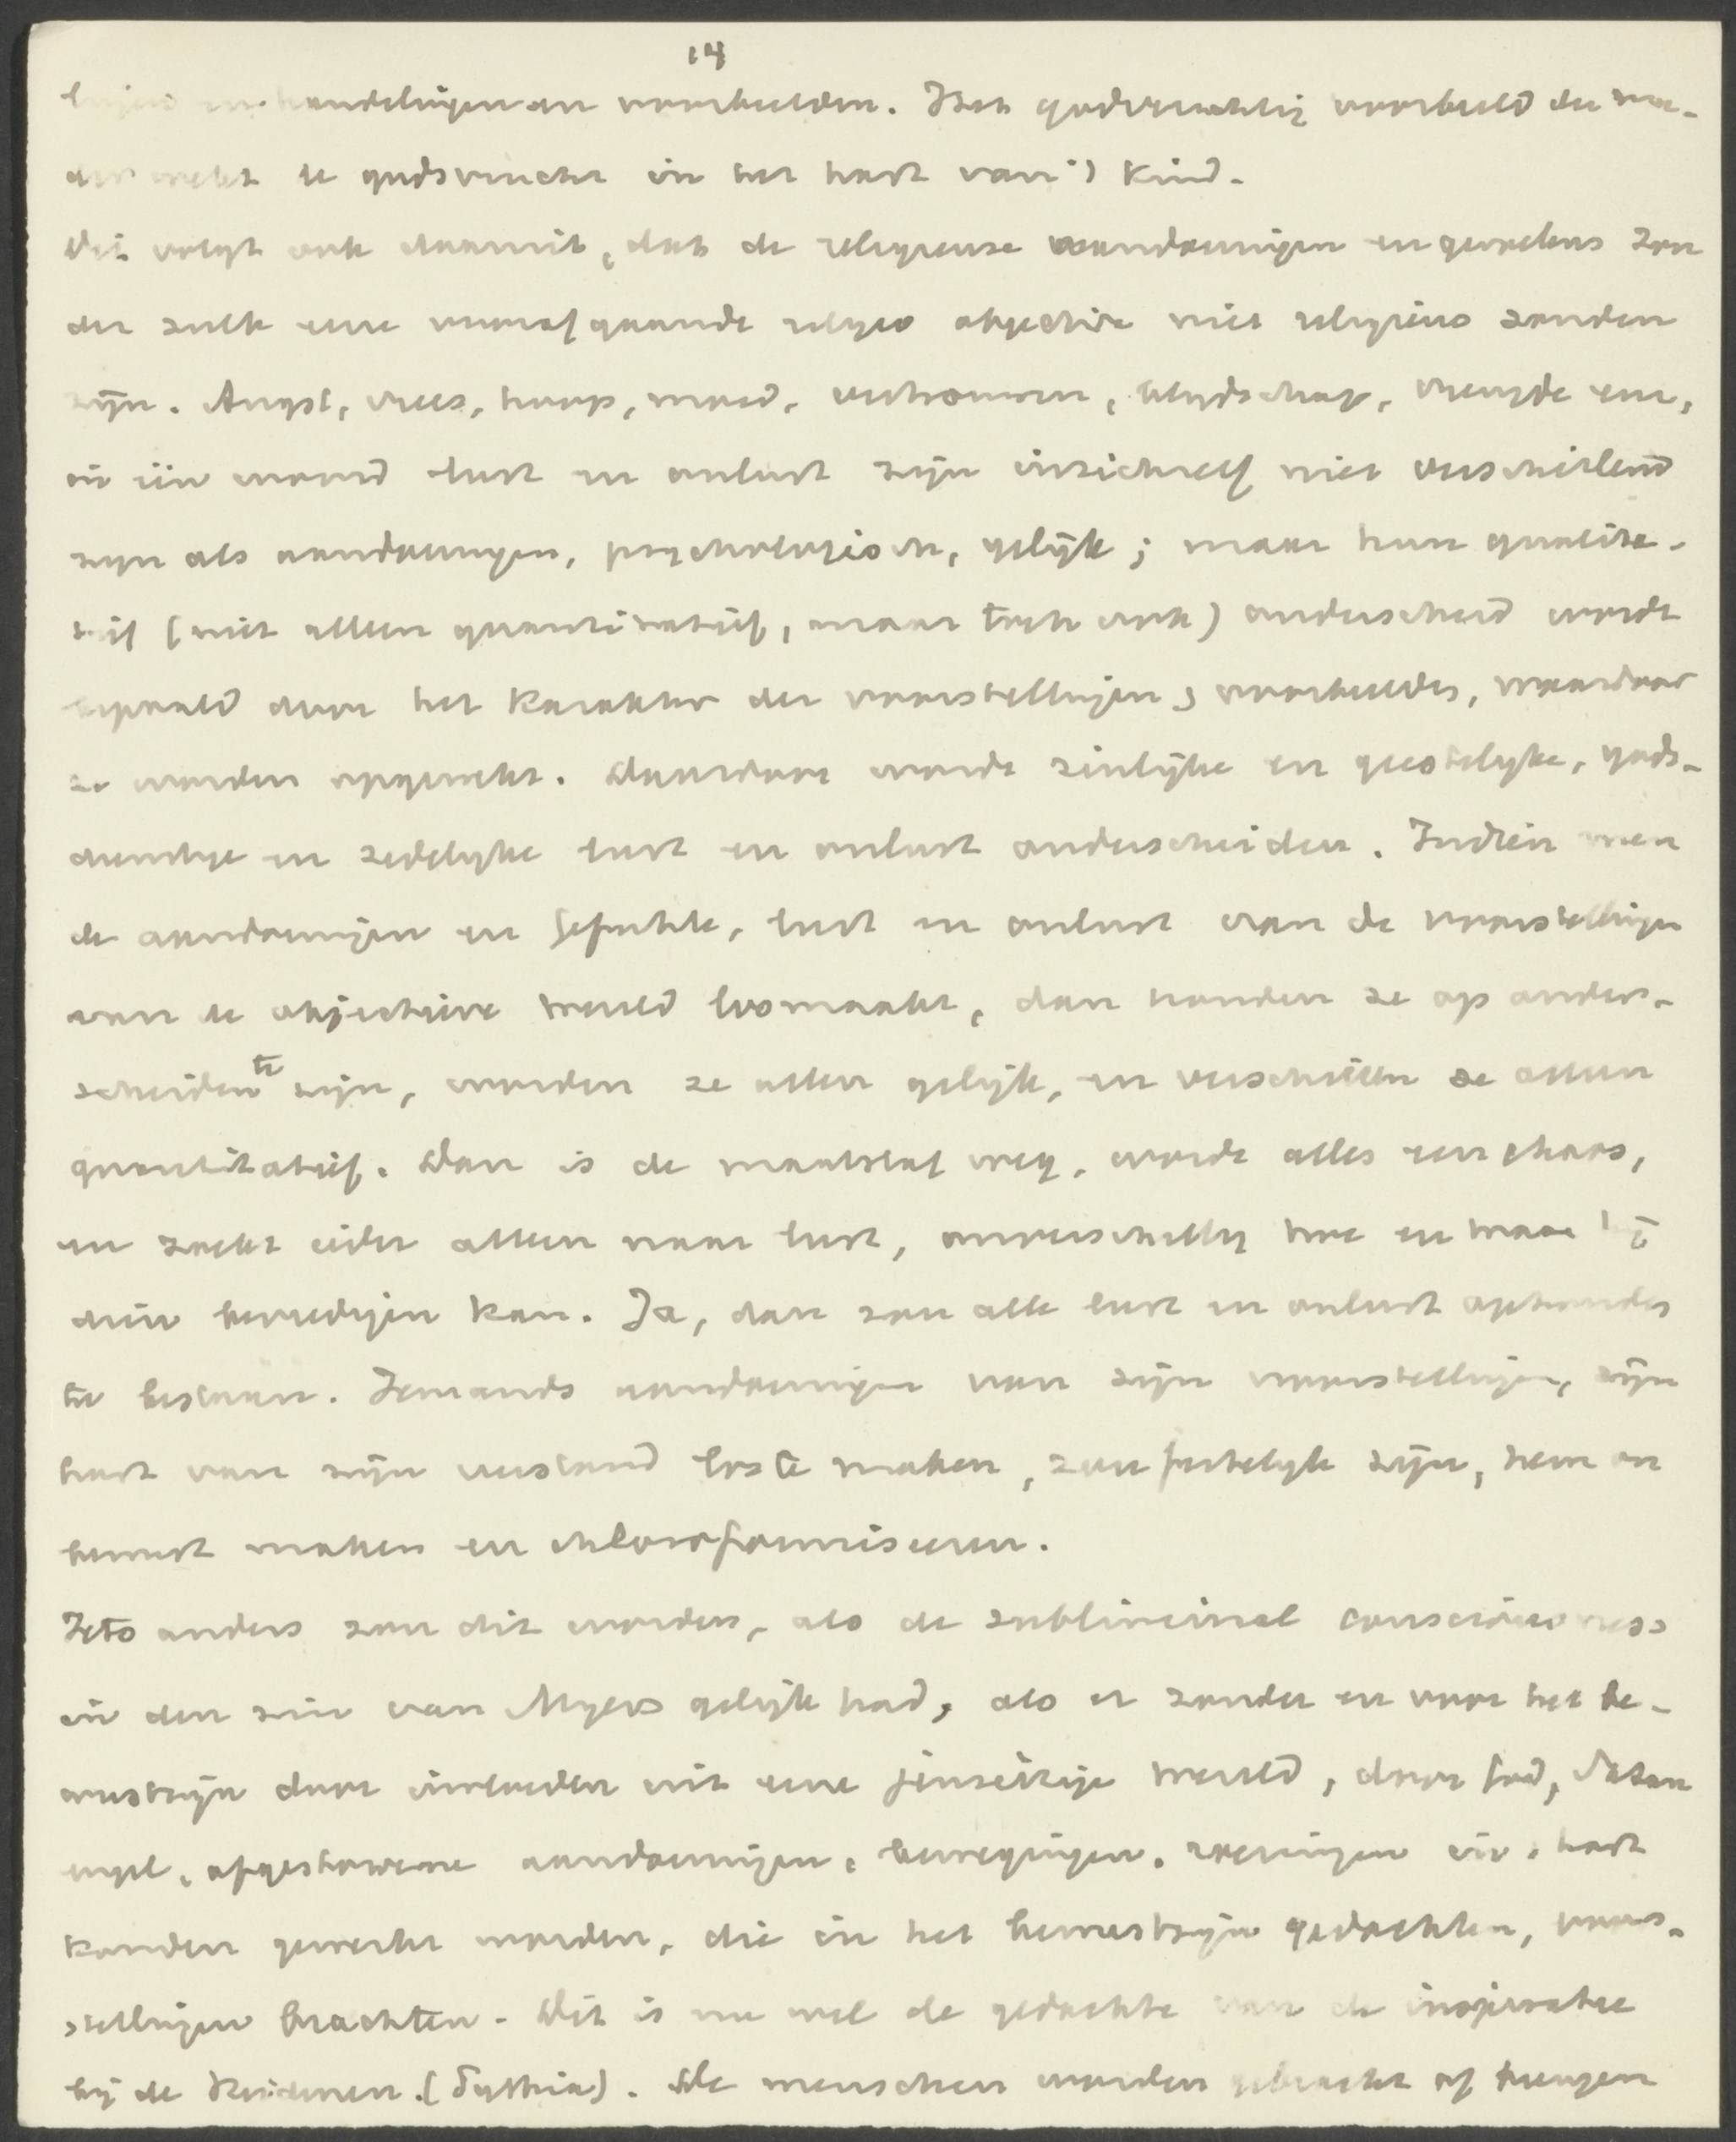 14
handelingen en voorbeelden. Het godvruchtig voorbeeld der moe-
der wekt de godsvrucht in het hart van 't kind.
Dit volgt ook daaruit, dat de religieuse aandoeningen en gevoelens zon
der zulk eene voorafgaande religio objectiva niet religieus zouden
zijn. Angst, vrees, hoop, moed, vertrouwen, blijdschap, vreugde enz,
in één woord lust en onlust zijn inzichzelf niet verschillend
zijn als aandoeningen, psychologisch, gelijk; maar hun qualita-
tief (niet alleen quantitatief, maar toch ook) onderscheid wordt
bepaald door het karakter der voorstellingen, voorbeelden, waardoor
ze worden opgewekt. Daardoor wordt zinlijke en geestelijke, gods-
dienstige en zedelijke lust en onlust onderscheiden. Indien men
de aandoeningen en gefühle, lust en onlust van de voorstellingen
van de objectieve wereld losmaakt, dan houden ze op onder-
scheiden te zijn, worden ze allen gelijk, en verschillen ze alleen
quantitatief. Dan is de maatstaf weg, wordt alles een chaos,
en zoekt ieder alleen naar lust, onverschillig hoe en waar hij
dien bevredigen kan. Ja, dan zou alle lust en onlust ophouden
te bestaan. Iemands aandoeningen van zijn voorstellingen, zijn
hart van zijn verstand los te maken, zou feitelijk zijn, hem on
bewust maken en chloroformiseeren.
Iets anders zou dit worden, als de sublimeinal consciousness
in den zin van Myers gelijk had, als er zonder en voor het be-
wustzijn door invloeden uit eene jenseitige wereld, door God, Satan
engel, afgestorvene aandoeningen, bewegingen, roeringen in 't hart
konden gewerkt worden, die in het bewustzijn gedachten, voor-
stellingen brachten. Dit is nu wel de gedachte van de inspiratie
bij de Heidenen. (Pythia). De menschen worden gebracht of brengen